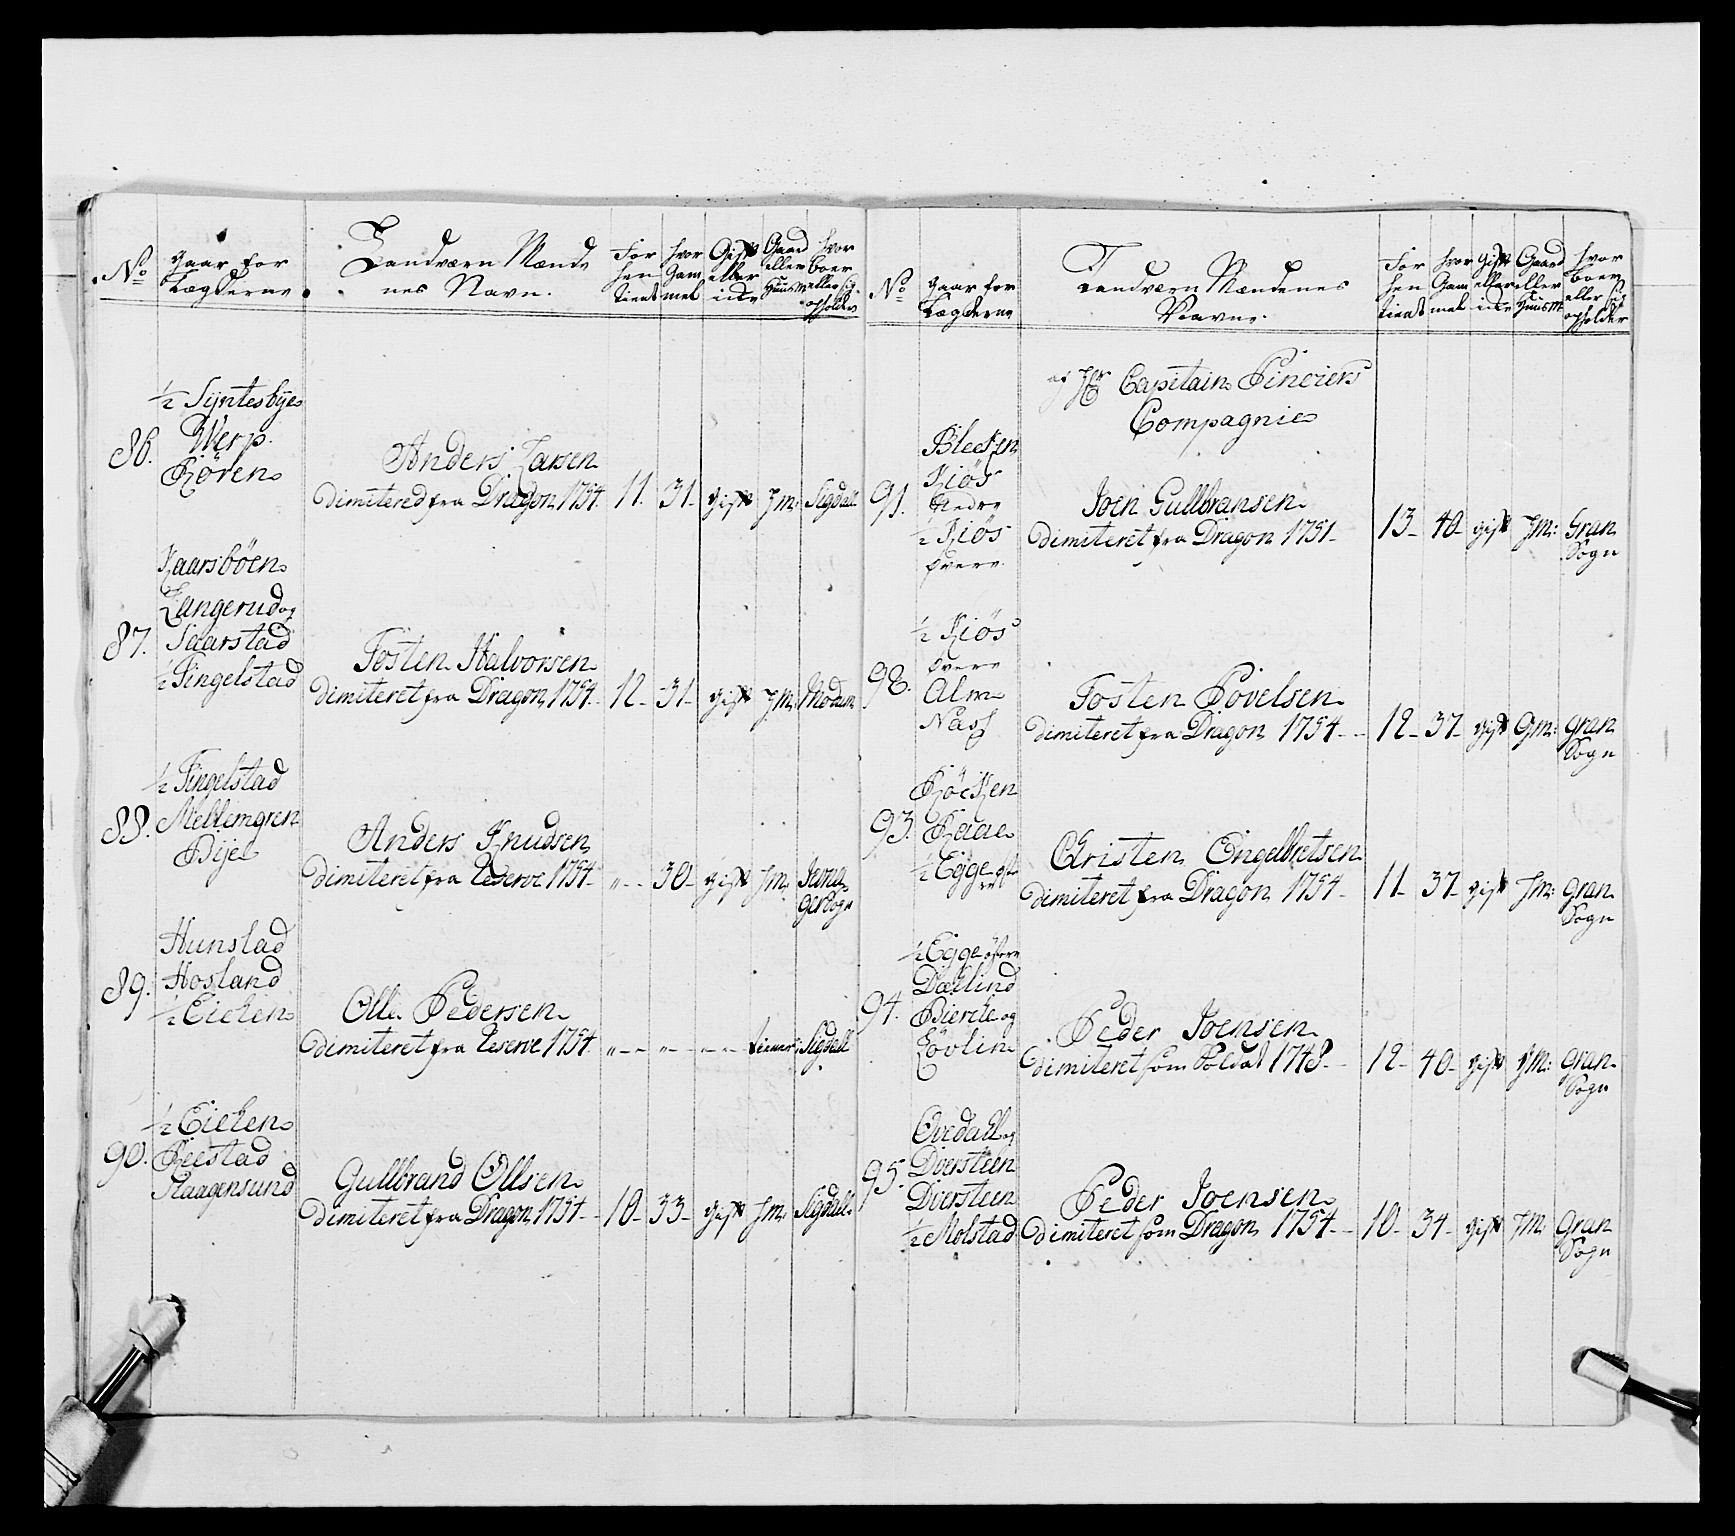 No
Gaar for
Lægderne
Landværn Mænde
nes Navn.
For
hen
tient
hvor
Gam
mel
Gift
eller
icke
Gaard
eller
Huusm
hvor
boer
eller sig
opholder
½ Sÿntesbÿe
86. Werp
Røren
Anders Larsen
Dimitered fra Dragon 1754. 11. 31. gift Hm: Sigdall
Kaarsbøen
Langerud og
87. Saarstad
½ Tingelstad
Tosten Halvorsen
Dimiteret fra Dragon 1754. 12. 31. gift Hm: Modum
½ Tingelstad
88. Mellemgren
Bije
Anders Knudsen
Dimiteret fra Reserve 1754. „ 30. gift Hm:
Hunstad
89. Hosland
½ Eieken
Olle Pedersen
Dimiteret fra Reserve 1754. „ „ tiener Sigdall
½ Eieken
90. Beestad
Haagensund
Gullbrand Ollsen
Dimiteret fra Dragon 1754. 10. 33. gift Hm: Sigdall
No
Gaar for
Lægderne
Landværn Mændenes
Navne.
For
hen
tient
hvor
Gam
mel
gift
eller
icke
Gaard
eller
Huusm
hvor
boer
eller sig
opholder
af Hr Capitain Sinciers
Compagnie
Blecken
Kiøs
91. Nedre
½ Kiøs
øvere
Joen Gullbransen
Dimiteret fra Dragon 1751. 13. 40. gift Hm: Gran
Sogn
½ Kiøs
øvere
92. Alm
Nass
Tosten Povelsen
Dimiteret fra Dragon 1754. 12. 37. gift Gm: Gran
Sogn
Røcken
93. Raae
½ Egge
Christen Engelbretsen
Dimiteret fra Dragon 1754. 11. 37. gift Hm: Gran
Sogn
½ Egge
Dællind
94. Biercke og
Løvlin
Peder Joensen
Dimiteret som Soldat 1748. 12. 40. gift Hm: Gran
Sogn
Evedall og
Dversteen
95. Dversteen
½ Molstad
Peder Joensen
Dimiteret som Dragon 1754. 10. 34. gift Hm: Gran
Sogn